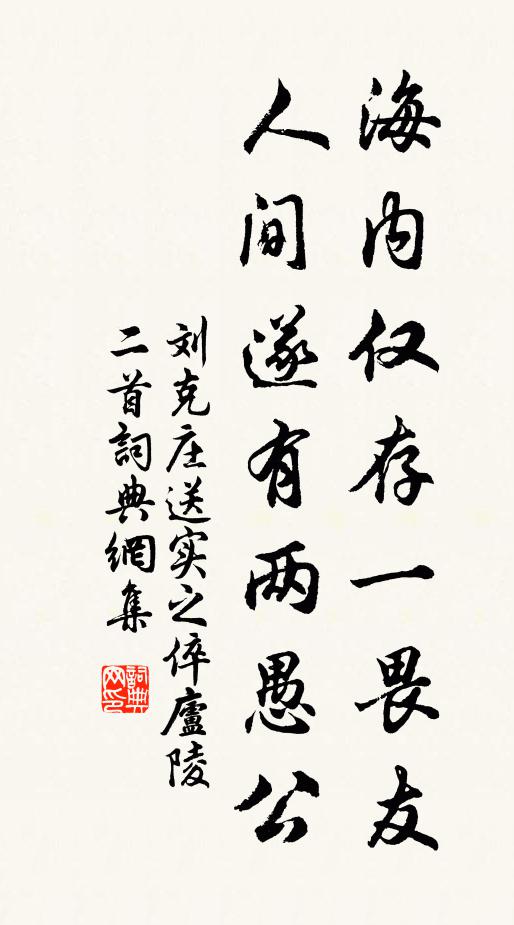 海内仅存一畏友
人间遂有两愚公
刘克庄送实之倅廬陵
二首詞典網集
詞典
网印